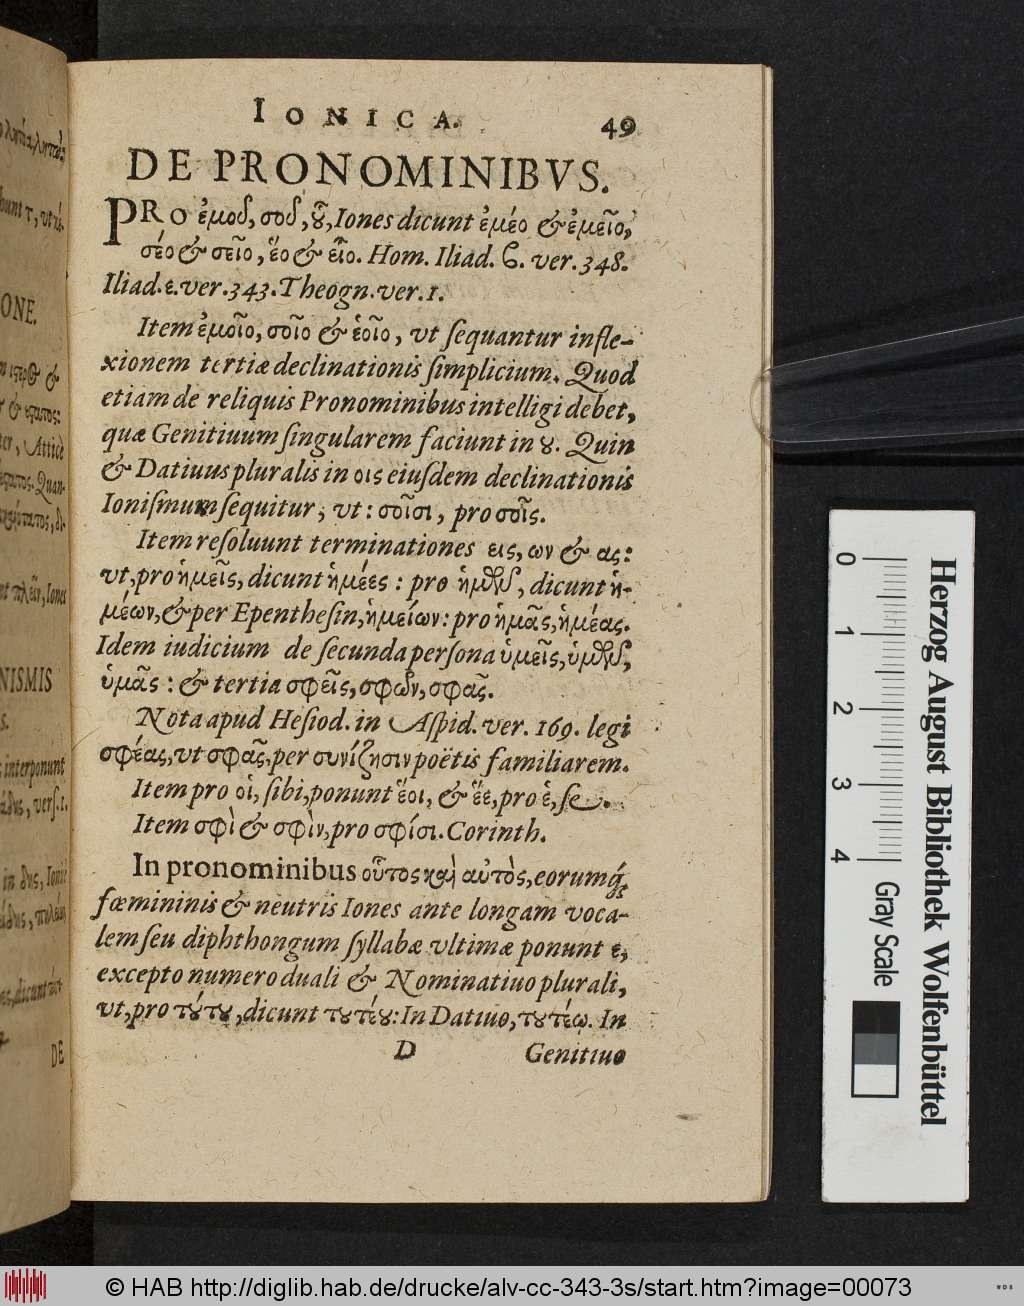 IONICA. 49
DE PRONOMINIBVS.
PRO ἐμοῦ, σοῦ, ȣ̔͂, Iones dicunt ἐμέο & ἐμεῖο,
σέο & σεῖο, ἕο & εἷο. Hom. Iliad. ϐ. ver. 348.
Iliad. ε. ver. 343. Theogn. ver. 1.
Item ἐμοῖο, σοῖο & ἑοῖο, vt ſequantur infle-
xionem tertiæ declinationis ſimplicium. Quod
etiam de reliquis Pronominibus intelligi debet,
quæ Genitiuum ſingularem faciunt in ȣ. Quin
& Datiuus pluralis in οις eiuſdem declinationis
Ioniſmum ſequitur, vt: σοῖσι, pro σοῖς.
Item reſoluunt terminationes εις, ων & ας:
vt, pro ἡμεῖς, dicunt ἡμέες: pro ἡμῶν, dicunt ἡ-
μέων, & per Epentheſin, ἡμείων: pro ἡμᾶς, ἡμέας.
Idem iudicium de ſecunda perſona ὑμεῖς, ὑμῶν,
ὑμᾶς: & tertia σφεῖς, σφῶν, σφᾶς.
Nota apud Heſiod. in Aſpid. ver. 169. legi
σφέας, vt σφᾶς, per συνίζησιν poëtis familiarem.
Item pro οἱ, ſibi, ponunt ἕοι, & ἕε, pro ἑ, ſe.
Item σφὶ & σφὶν, pro σφίσι. Corinth.
In pronominibus οὗτος καὶ αὐτὸς, eorumq́;
fœmininis & neutris Iones ante longam voca-
lem ſeu diphthongum ſyllabæ vltimæ ponunt ε,
excepto numero duali & Nominatiuo plurali,
vt, pro τȣ́τȣ, dicunt τȣτέȣ: In Datiuo, τȣτέῳ. In
D Genitiuo
ONE.
NISMIS
interponunt
DE
0 1 2 3 4
Herzog August Bibliothek Wolfenbüttel
Gray Scale
© HAB http://diglib.hab.de/drucke/alv-cc-343-3s/start.htm?image=00073